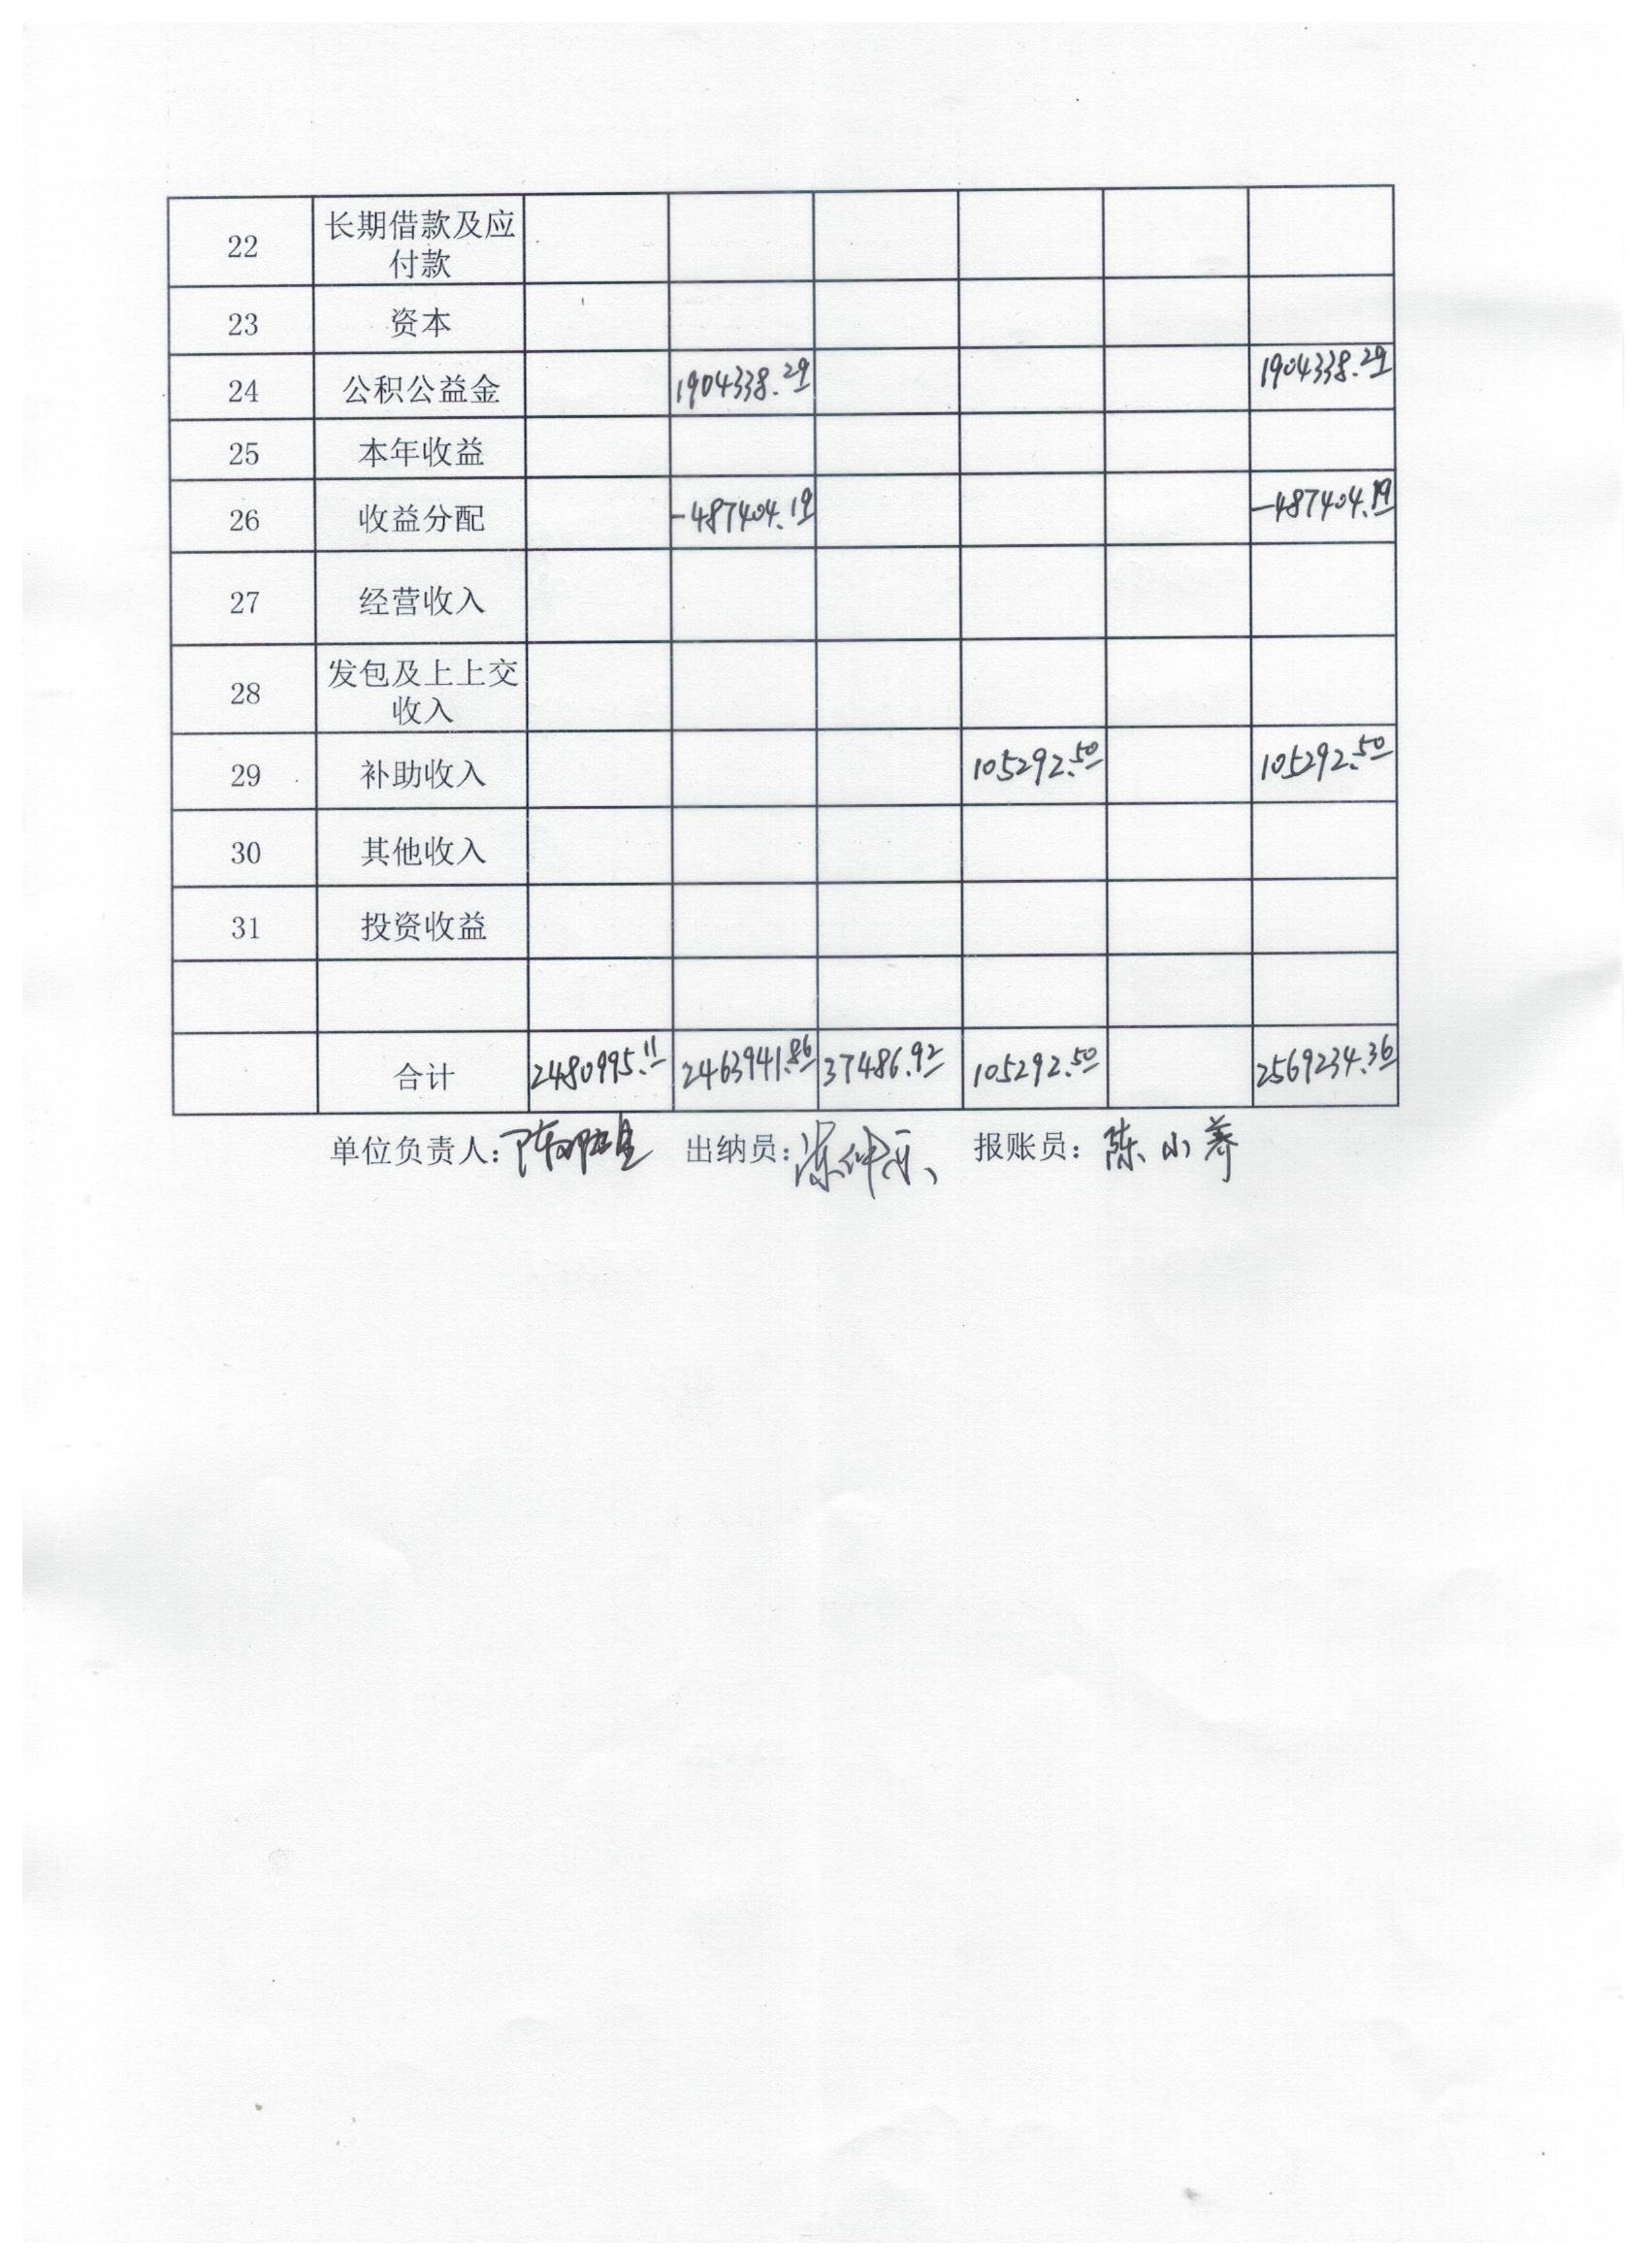 22 长期借款及应
付款
23 资本
24 公积公益金 1904338.29 1904338.29
25 本年收益
26 收益分配 -487404.19 -487404.19
27 经营收入
28 发包及上上交
收入
29 补助收入 105292.50 105292.50
30 其他收入
31 投资收益
合计 2480995.11 2463941.86 37486.92 105292.50 2569234.36
单位负责人: 出纳员: 报账员: 陈小养